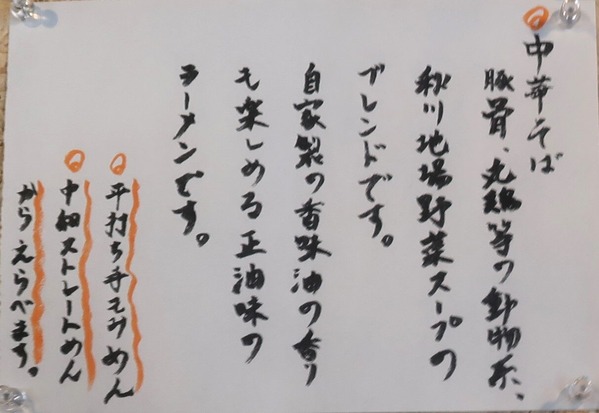 中華そば
豚骨、丸鶏等の動物系、
秋川地場野菜スープの
ブレンドです。
自家製の香味油の香り
も楽しめる正油味の
ラーメンです。
平打ち手もみめん
中細ストレートめん
からえらべます。